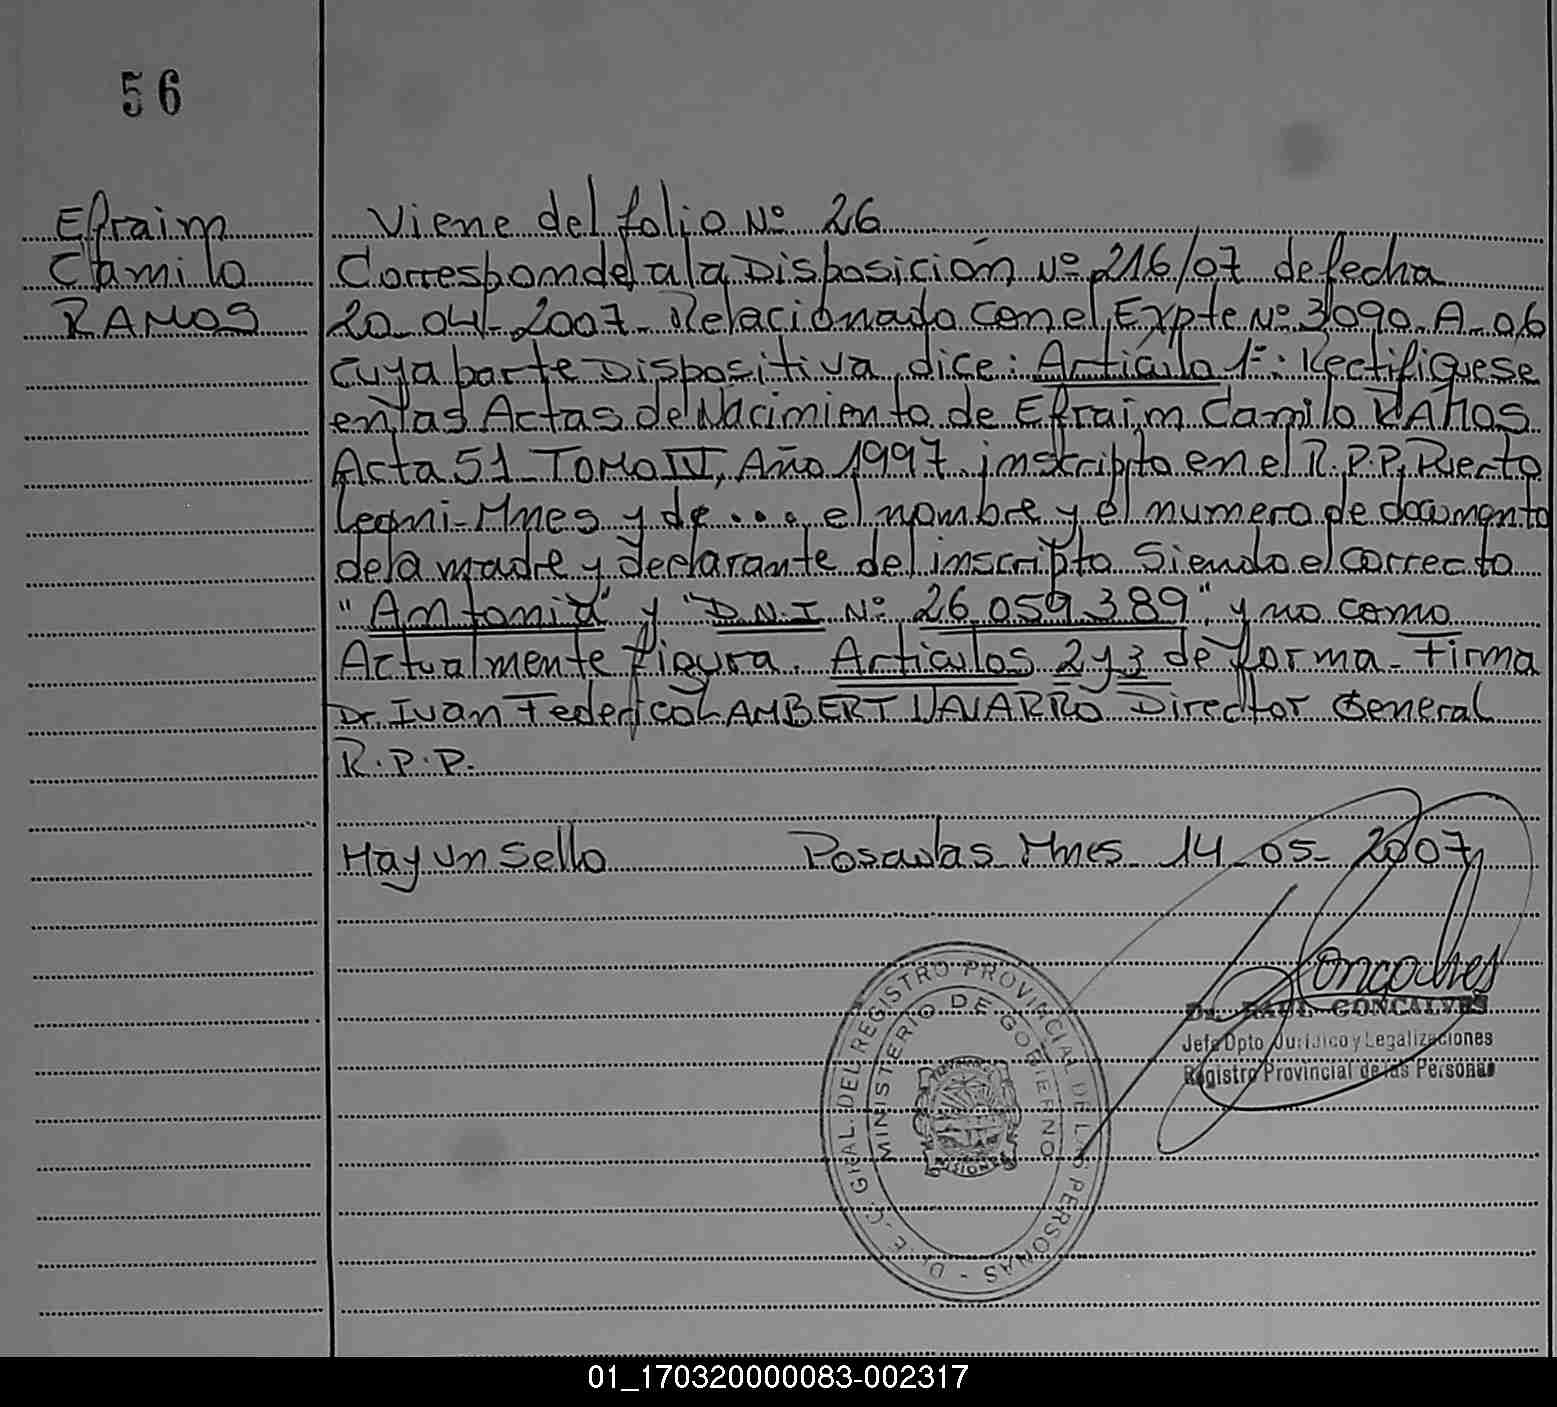 56
Efraim
Camilo
RAMOS
Viene del folio Nº 26
Corresponde a la Disposición Nº 216/07 de fecha
20-04-2007- Relacionado con el Expte Nº 3090-A-06
cuya parte Dispositiva dice: Articulo 1º: Rectifiquese
en las Actas de Nacimiento de Efraim Camilo RAMOS
Acta 51 Tomo IV, Año 1997 inscripto en el R.P.P. Puerto
Leoni-Mnes y de .... el nombre y el numero de documento
de la madre y declarante del inscripto Siendo el correcto
"Antonia" y "D.N.I Nº 26.059.389" y no como
Actualmente figura. Articulos 2 y 3 de forma- Firma
Dr. Ivan Federico LAMBERT NAVARRO Director General
R.P.P.
Hay un Sello Posadas Mnes 14-05-2007
Goncalves
Dr. RAUL GONCALVES
Jefe Dpto Juridico y Legalizaciones
Registro Provincial de las Personas
GRAL. DEL REGISTRO PROVINCIAL DE LAS PERSONAS
MINISTERIO DE GOBIERNO
MISIONES
01_170320000083-002317